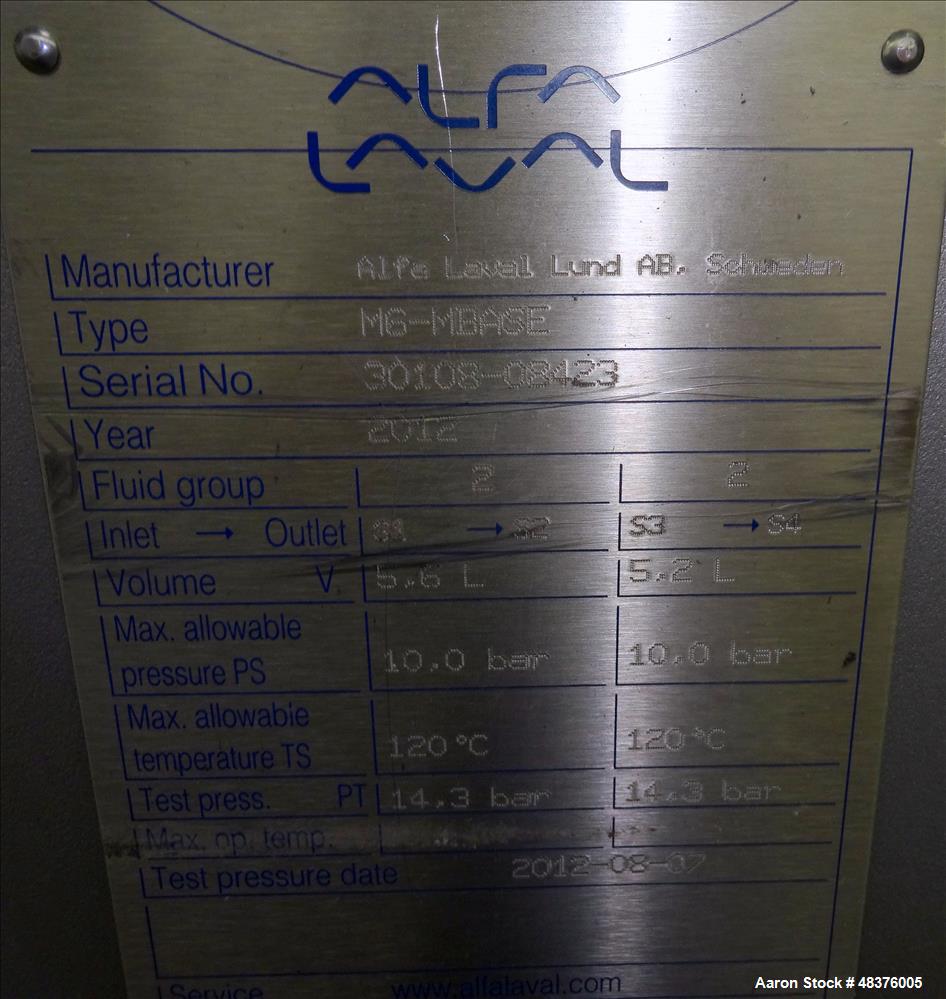 ALFA
LAVAL
Manufacturer Alfa Laval Lund AB, Schweden
Type M6-MBASE
Serial No. 30108-08423
Year 2012
Fluid group 2 2
Inlet → Outlet S1 → S2 S3 → S4
Volume V 5,6 L 5,2 L
Max. allowable
pressure PS 10,0 bar 10,0 bar
Max. allowable
temperature TS 120 °C 120 °C
Test press. PT 14,3 bar 14,3 bar
Max. op. temp.
Test pressure date 2012-08-07
Service www.alfalaval.com
Aaron Stock # 48376005